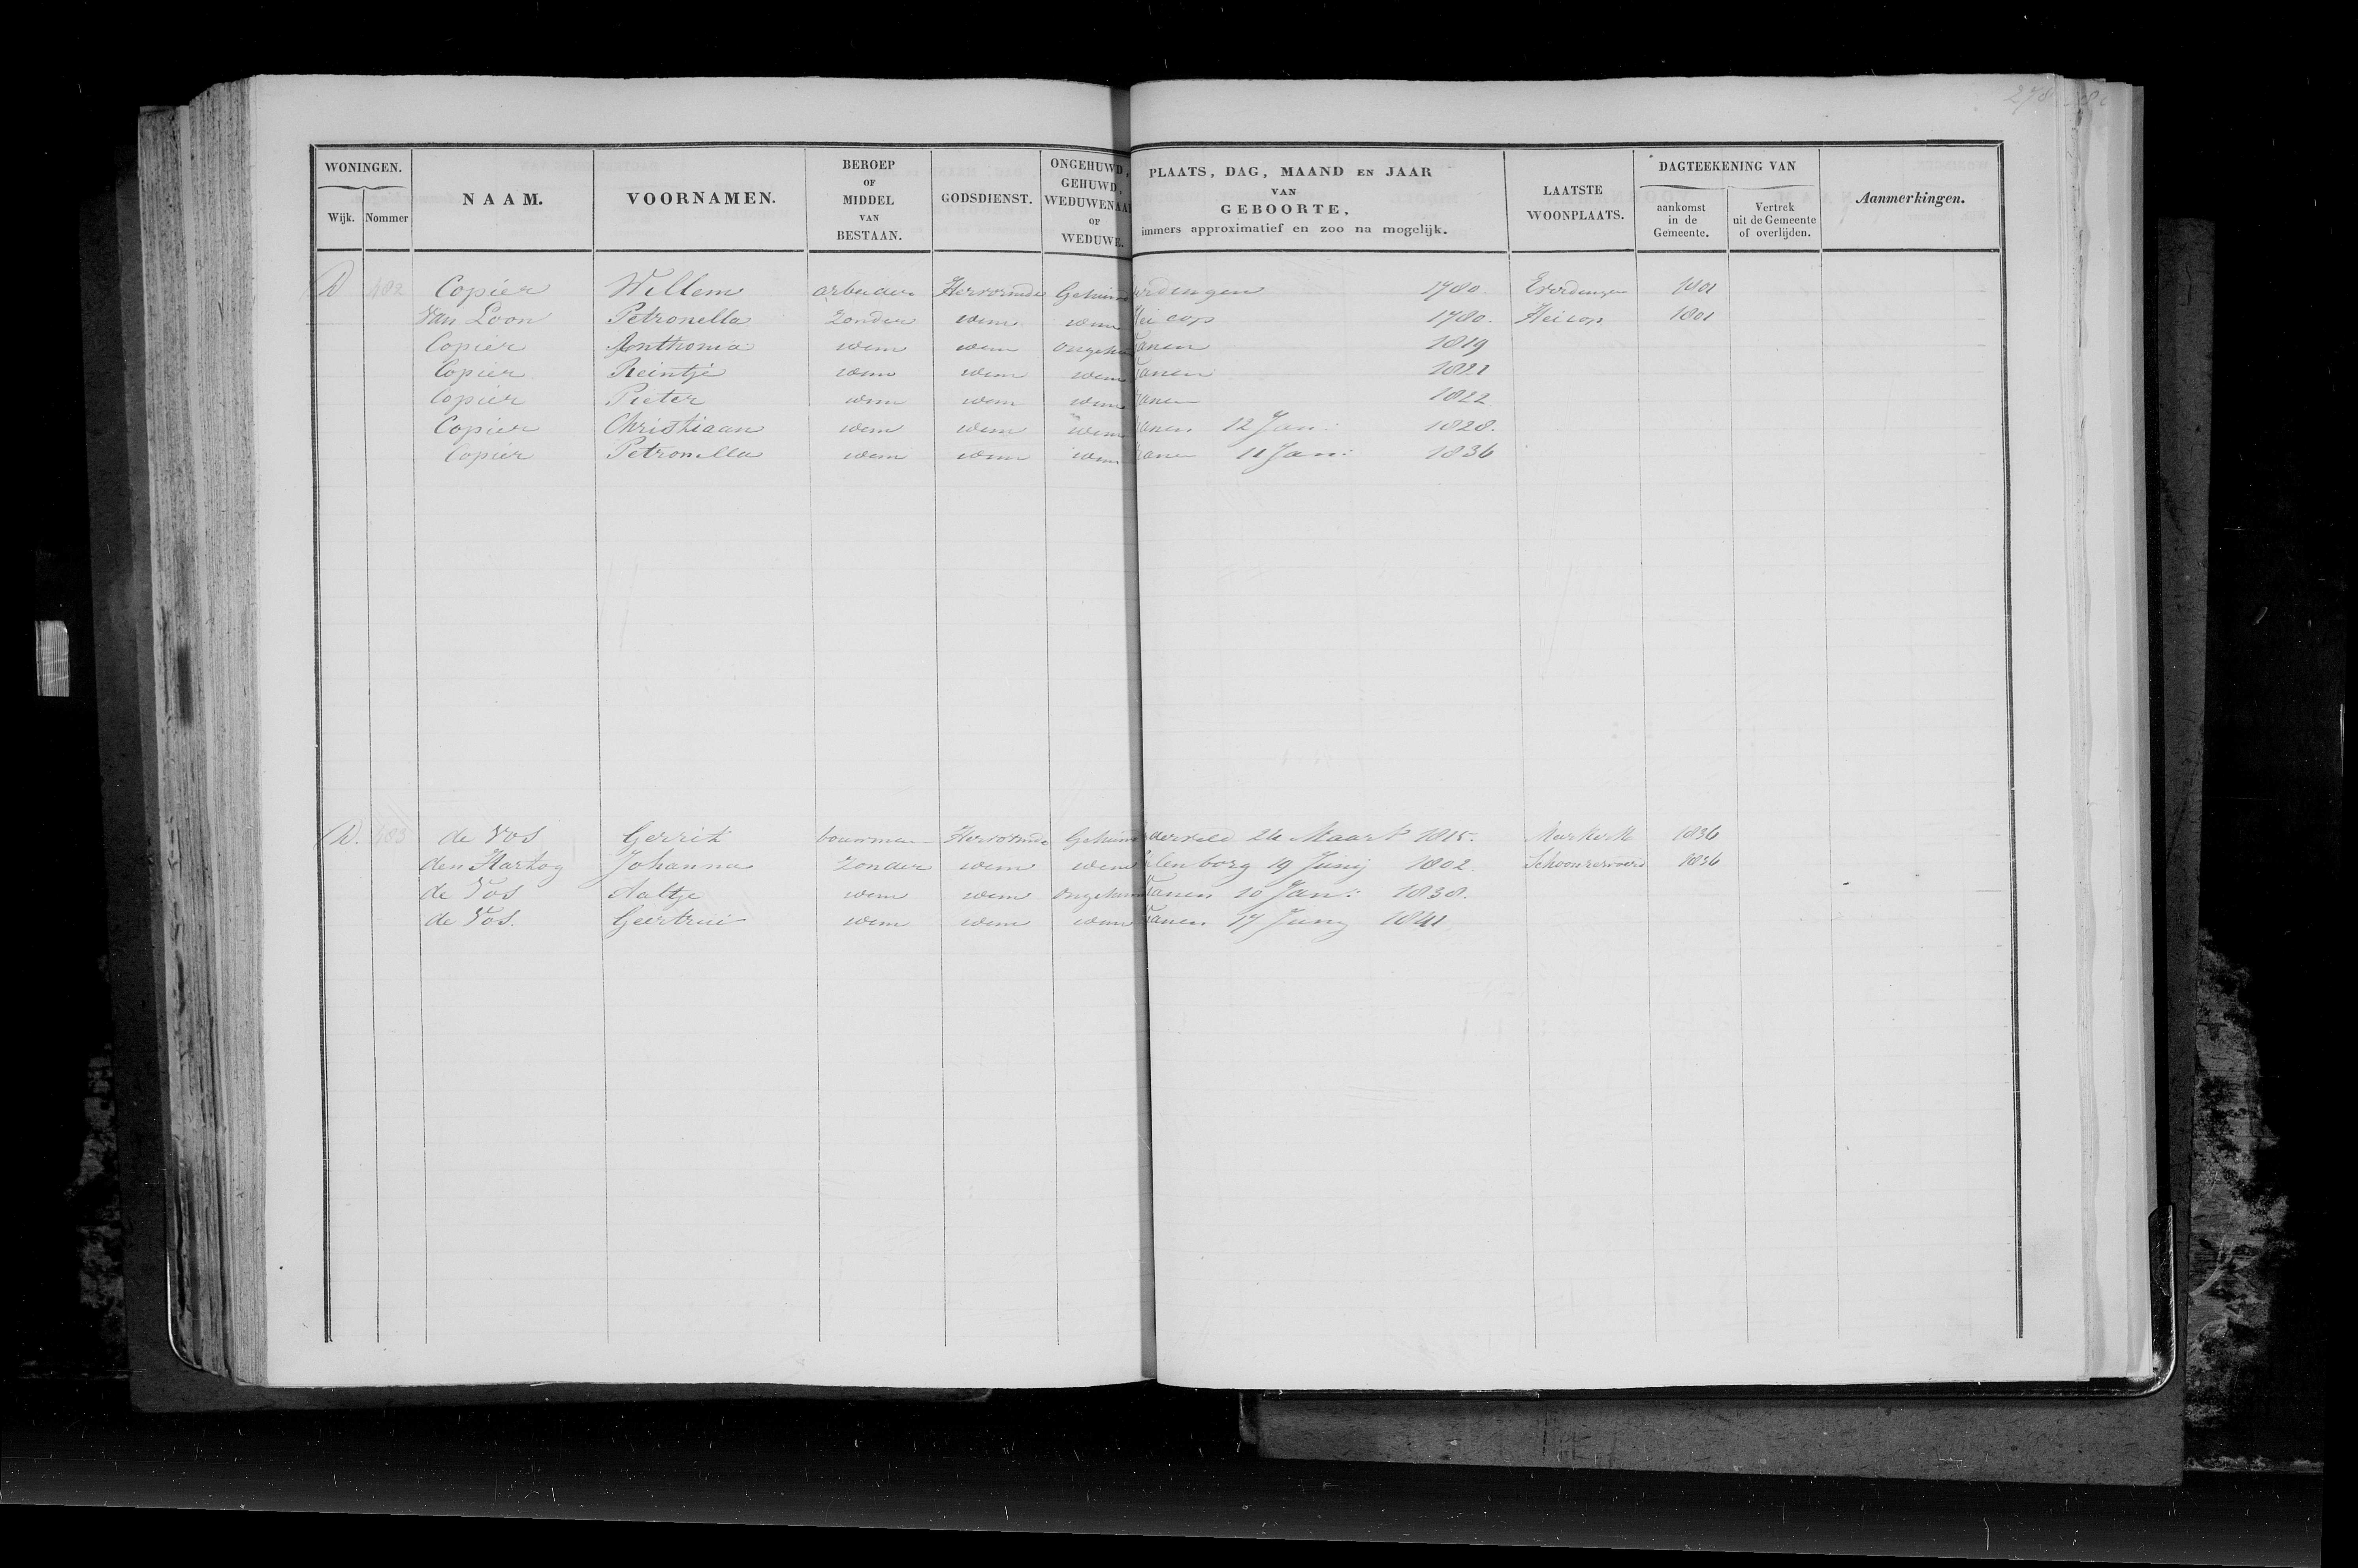 278
WONINGEN. NAAM. VOORNAMEN. BEROEP OF MIDDEL VAN BESTAAN. GODSDIENST. ONGEHUWD, GEHUWD, WEDUWENAAR OF WEDUWE. PLAATS, DAG, MAAND EN JAAR VAN GEBOORTE, immers approximatief en zoo na mogelijk. LAATSTE WOONPLAATS. DAGTEEKENING VAN Aanmerkingen.
Wijk. Nommer aankomst in de Gemeente. Vertrek uit de Gemeente of overlijden.
D 482 Copier Willem arbeider Hervormde Gehuwd erdingen 1780. Everdingen 1801
Van Loon Petronella Zonder idem idem Heicop 1780. Heicop 1801
Copier Anthonia idem idem Ongehu Vianen 1819
Copier Reintje idem idem idem Vianen 1821
Copier Pieter idem idem idem Vianen 1822
Copier Christiaan idem idem idem Vianen 12 Jan: 1828.
Copier Petronella idem idem idem Vianen 11 Jan: 1836
D. 483 de Vos Gerrit bouwman Hervormde Gehuwd derveld 24 Maart 1815. Meerkerk 1836
den Hartog Johanna Zonder idem idem lenborg 19 Junij 1802. Schoonrewoerd 1836
de Vos Aaltje idem idem Ongehuw Vianen 10 Jan: 1838.
de Vos. Geertrui idem idem idem Vianen 17 Junij 1841